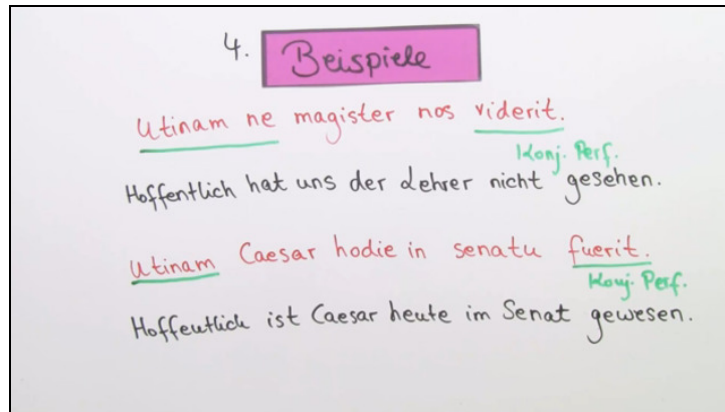 4. Beispiele
Utinam ne magister nos viderit.
Konj. Perf.
Hoffentlich hat uns der Lehrer nicht gesehen.
Utinam Caesar hodie in senatu fuerit.
Konj. Perf.
Hoffentlich ist Caesar heute im Senat gewesen.